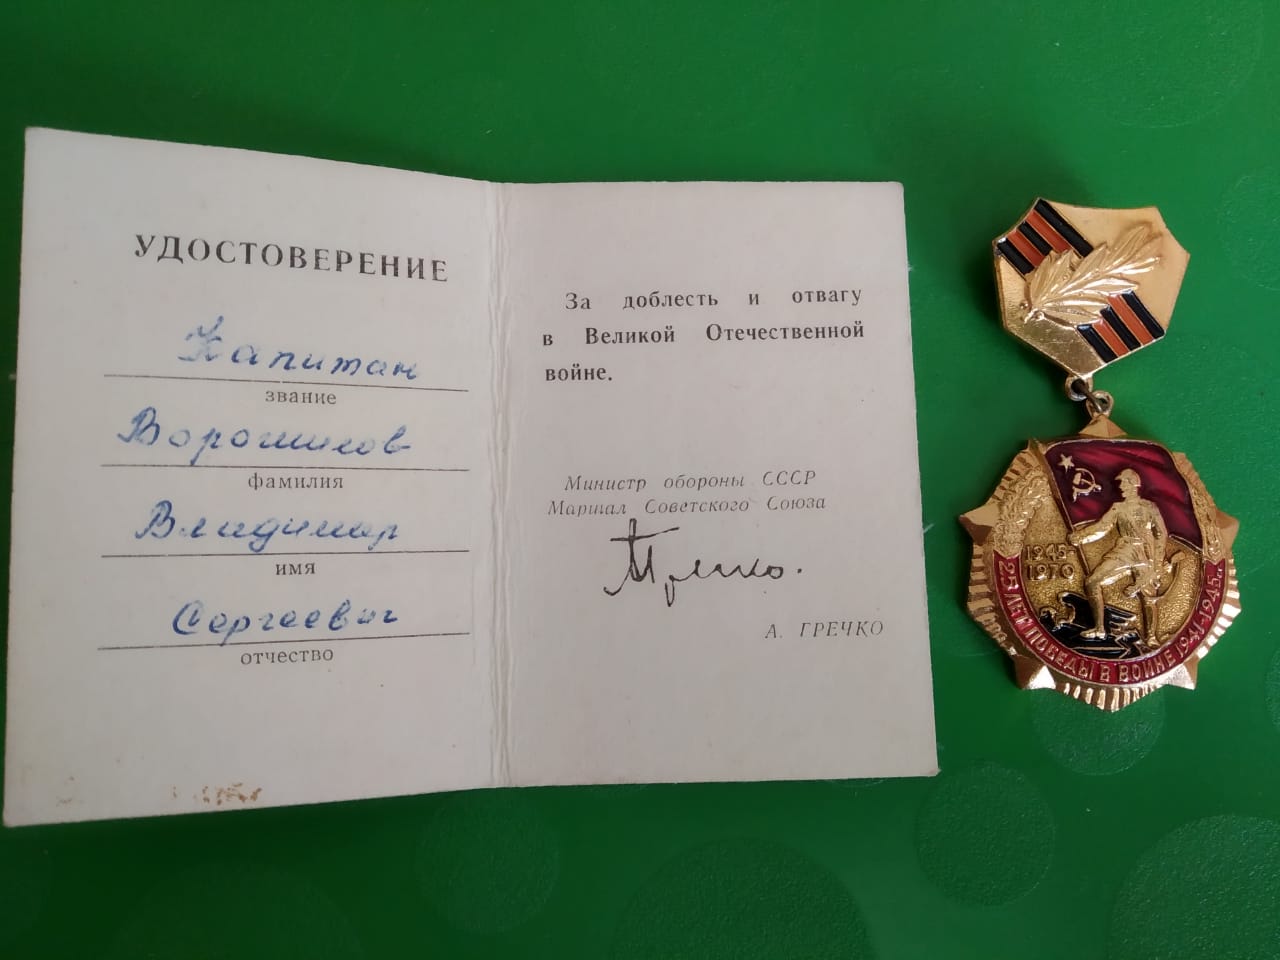 УДОСТОВЕРЕНИЕ
Капитан
звание
Ворошилов
фамилия
Владимир
имя
Сергеевич
отчество
За доблесть и отвагу
в Великой Отечественной
войне.
Министр обороны СССР
Маршал Советского Союза
АГречко.
А. ГРЕЧКО
1945-
1970
25 ЛЕТ ПОБЕДЫ В ВОЙНЕ 1941-1945гг.